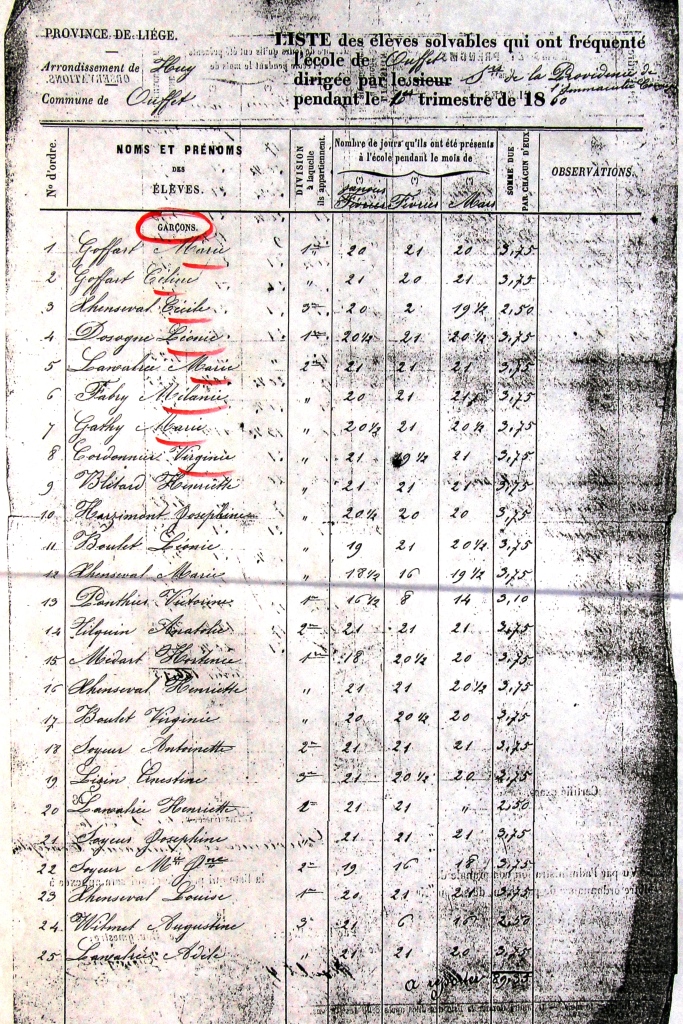 PROVINCE DE LIÉGE.
LISTE des élèves solvables qui ont fréquenté
Arrondissement de Huy
l'école de Ouffet
dirigée par le sieur Srs de la Providence de
l'Immaculée
Commune de Ouffet
pendant le 1er trimestre de 1860
Nos d'ordre.
NOMS ET PRÉNOMS
DES
ÉLÈVES.
DIVISION
à laquelle
ils appartiennent.
Nombre de jours qu'ils ont été présents
à l'école pendant le mois de
(*) (*) (*)
Janvier
Février Février Mars
SOMME DUE
PAR CHACUN D'EUX.
OBSERVATIONS.
GARÇONS.
1 Goffart Marie 1re 20 21 20 3,75
2 Goffart Céline " 21 20 21 3,75
3 Xhenseval Cécile 3me 20 2 19 1/2 2,50
4 Dosogne Léonie 1re 20 1/2 21 20 1/2 3,75
5 Lawalrée Marie 2me 21 21 21 3,75
6 Fabry Mélanie " 20 21 21 3,75
7 Gathy Marie " 20 1/2 21 20 1/2 3,75
8 Cordonnier Virginie " 21 19 1/2 21 3,75
9 Blitard Henriette " 21 21 21 3,75
10 Harzimont Josephine " 20 1/2 20 20 3,75
11 Boulet Léonie " 19 21 20 1/2 3,75
12 Xhenseval Marie " 18 1/2 16 19 1/2 3,75
13 Ponthir Victorine 1re 16 1/2 8 14 3,10
14 Vilquin Anatolie 2me 21 21 21 3,75
15 Médart Hortence 1re 18 20 1/2 20 3,75
16 Xhenseval Henriette " 21 21 20 1/2 3,75
17 Boulet Virginie " 20 20 1/2 20 3,75
18 Soyeur Antoinette 2me 21 21 21 3,75
19 Lisin Ernestine 3me 21 20 1/2 20 3,75
20 Lawalrée Henriette 2me 21 21 " 2,50
21 Soyeur Josephine 21 21 21 3,75
22 Soyeur Mie Jne 2me 19 16 18 3,75
23 Xhenseval Louise 1re 20 21 21 3,75
24 Wilmet Augustine 3e 21 6 16 2,50
25 Lawalrée Adèle " 21 21 20 3,75
a reporter